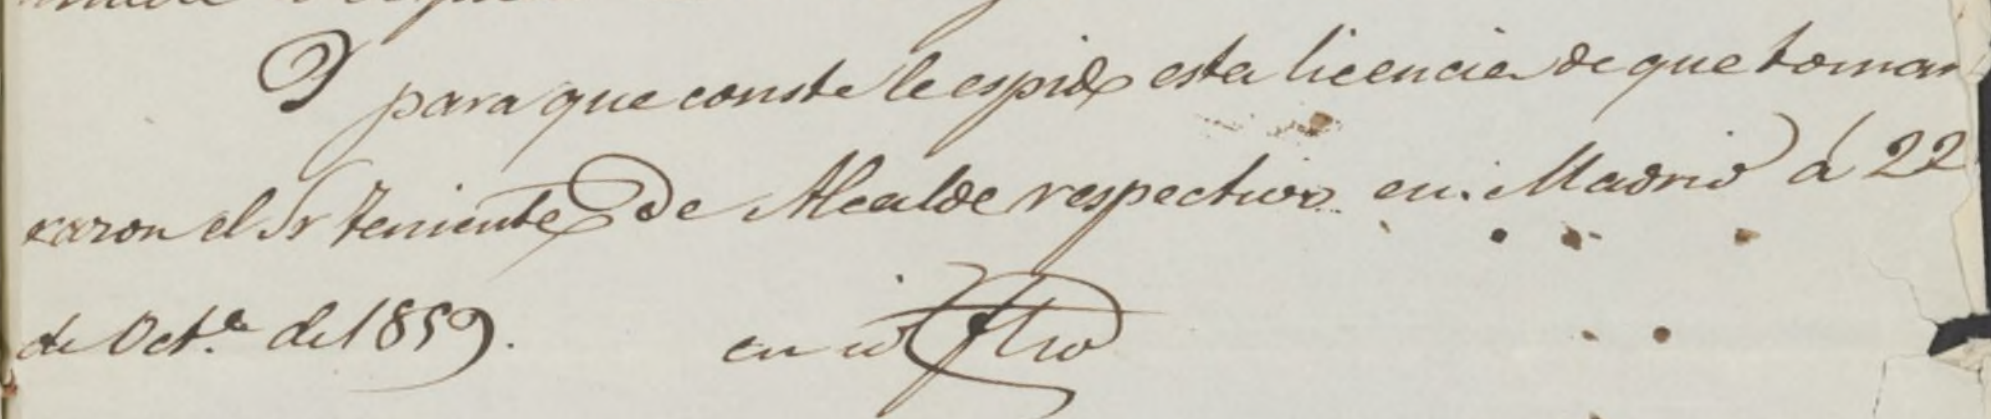 Y para que conste le espido esta licencia de que tomar
razon el Sr Teniente de Alcalde respectivo en Madrid á 22
de Oct.e de 1859.